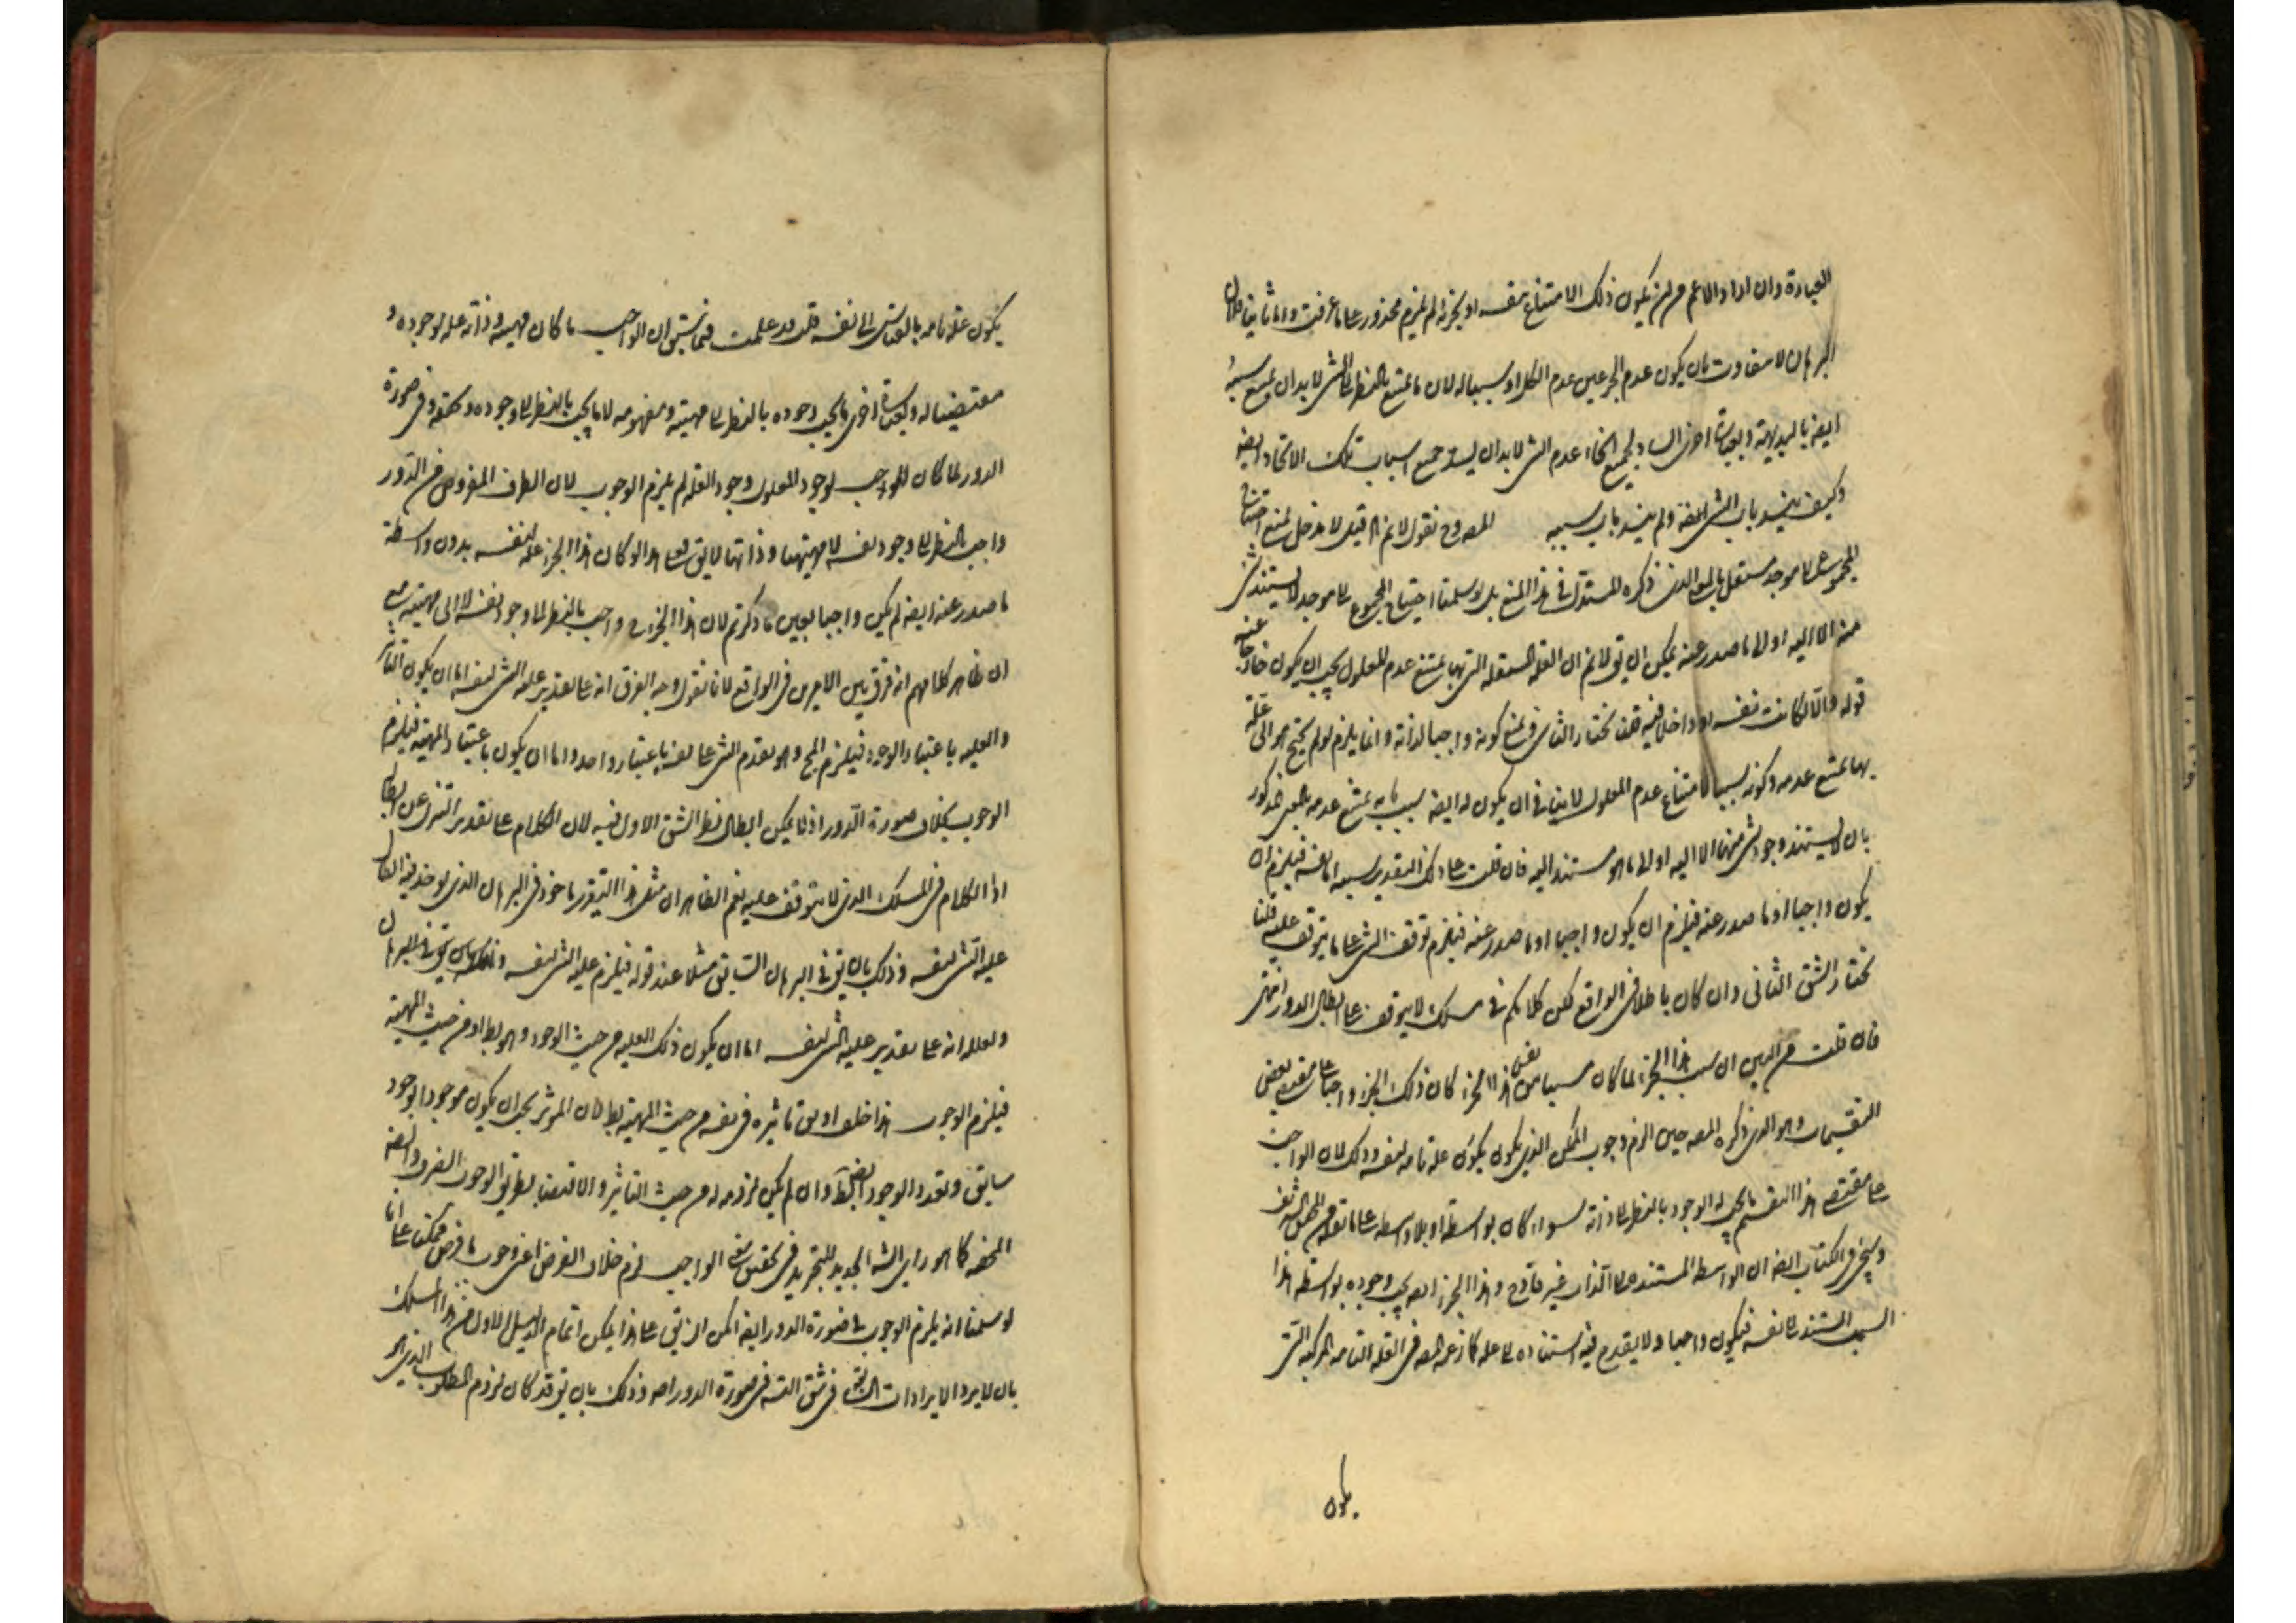 العبارة وان اراد الاعم من ان يكون ذلك الامتناع بنفسه او بجزئه لم يلزم محذور على ما عرفت واما ثانيا فلان
البرهان لا يتفاوت بان يكون عدم الجزء عين عدم الكل او سببا له لان ما يمتنع بالنظر الى الشئ لا بد ان يمتنع بسببه
ايضا بالبديهة وبعبارة اخرى الساد لجميع انحاء عدم الشئ لا بد ان يسد جميع اسباب تلك الانحاء ايضا
وكيف ينسد باب الشئ نفسه ولم ينسد باب سببه المصـ وح نقول لانم القيد لا مدخل لمنع احتياج
المجموع الى موجد مستقل بالمعنى الذي ذكره المستدل في هذا المنع بل لو سلمنا احتياج المجموع الى موجد لا يستند شئ
منه الا اليه او الى ما صدر عنه يمكن ان يق لانم ان العلة المستقلة التي بها يمتنع عدم المعلول يجب ان يكون خارجا عنه
قوله والا لكانت نفسه او داخلا فيه قلنا نختار الثاني ونمنع كونه واجبا لذاته وانما يلزم لو لم يحتج هو الى علة
بها يمتنع عدمه وكونه سببا لامتناع عدم المعلول لا ينافي ان يكون له ايضا سبب به يمتنع عدمه بالمعنى المذكور
بان لا يستند وجود شئ منهما الا اليه او الى ما هو مستند اليه فان قلت على ذلك التقدير سببه اما نفسه فيلزم ان
يكون واجبا او ما صدر عنه فيلزم ان يكون واجبا او ما صدر عنه فيلزم توقف الشئ على ما يتوقف عليه قلنا
نختار الشق الثاني وان كان باطلا في الواقع لكن كلامكم في مسلك لا يتوقف على ابطال الدور انتهى
فان قلت من البين ان سبب هذا الجزء لما كان مسببا من نفس هذا الجزء كان ذلك الجزء واجبا على مقتضى بعض
التقسيمات وهو الذي ذكره المصـ حين الزم وجوب الممكن الذي يكون علة تامة لنفسه وذلك لان الواجب
على مقتضى هذا التقسيم ما يجب له الوجود بالنظر الى ذاته سواء كان بواسطة او بلا واسطة على ما
وسيجئ في الكتاب ايضا ان الواسطة المستندة الى الذات غير قادح وهذا الجزء ايضا يجب وجوده بواسطة هذا
السبب المستند الى نفسه فيكون واجبا ولا يقدح فيه استناده الى علة كما زعمه المصـ في العلة التامة المركبة التي
يكون
يكون علة تامة بالقياس الى نفسه قلت قد علمت فيما سبق ان الواجب ما كان مهيته وذاته علة لوجوده و
مقتضيا له وبعبارة اخرى ما يجب وجوده بالنظر الى مهيته ومفهومه لا ما يجب بالنظر الى وجوده وتحققه وفي صورة
الدور لما كان الموجب لوجود المعلول وجود العلة لم يلزم الوجوب لان الطرف المفروض من الدور
واجب بالنظر الى وجود نفسه لا مهيتها وذاتها لا يق فعلى هذا لو كان هذا الجزء علة لنفسه بدون واسطة
ما صدر عنه ايضا لم يكن واجبا بعين ما ذكرتم لان هذا الجزء ح واجب بالنظر الى وجود نفسه لا الى مهيته مع
ان ظاهر كلامهم انه فرق بين الامرين في الواقع لانا نقول وجه الفرق انه على تقدير علية الشئ لنفسه اما ان يكون التاثير
والعلية باعتبار الوجود فيلزم المح وهو تقدم الشئ على نفسه باعتبار واحد واما ان يكون باعتبار المهية فيلزم
الوجوب بخلاف صورة الدور اذ لا يمكن ابطال نظير الشق الاول فيه لان الكلام على تقدير التنزل عن ابطال
اذ الكلام في المسلك الذي لا يتوقف عليه نعم الظاهر ان مثل هذا التقرير ماخوذ في البرهان الذي يوخذ فيه ابطال
علية الشئ لنفسه وذلك بان يق في البرهان السابق مثلا عند قوله فيلزم علية الشئ لنفسه
ولعله انه على تقدير علية الشئ لنفسه اما ان يكون ذلك العلية من حيث الوجود وهو بط او من حيث المهية
فيلزم الوجوب هذا خلف او يق تاثيره في نفسه من حيث المهية بط لان الموثر يجب ان يكون موجودا بوجود
سابق وتعدد الوجود ايضا بط وان لم يكن لزومه له من حيث التاثير والاقتضاء بطريق الوجوب الصرف والضرورة
المحضة كما هو راى الشـ الجديد للتجريد في تحقيق معنى الواجب لزم خلاف الفرض اعني وجوب ما فرض ممكنا على انا
لو سلمنا انه يلزم الوجوب في صورة الدور ايضا امكن ان يق على هذا يمكن اتمام الدليل الاول من هذا المسلك
بان لا يرد الايرادات السابقة في شق التسـ في صورة الدور اصـ وذلك بان يق قد كان لزوم المطلوب الذي هو